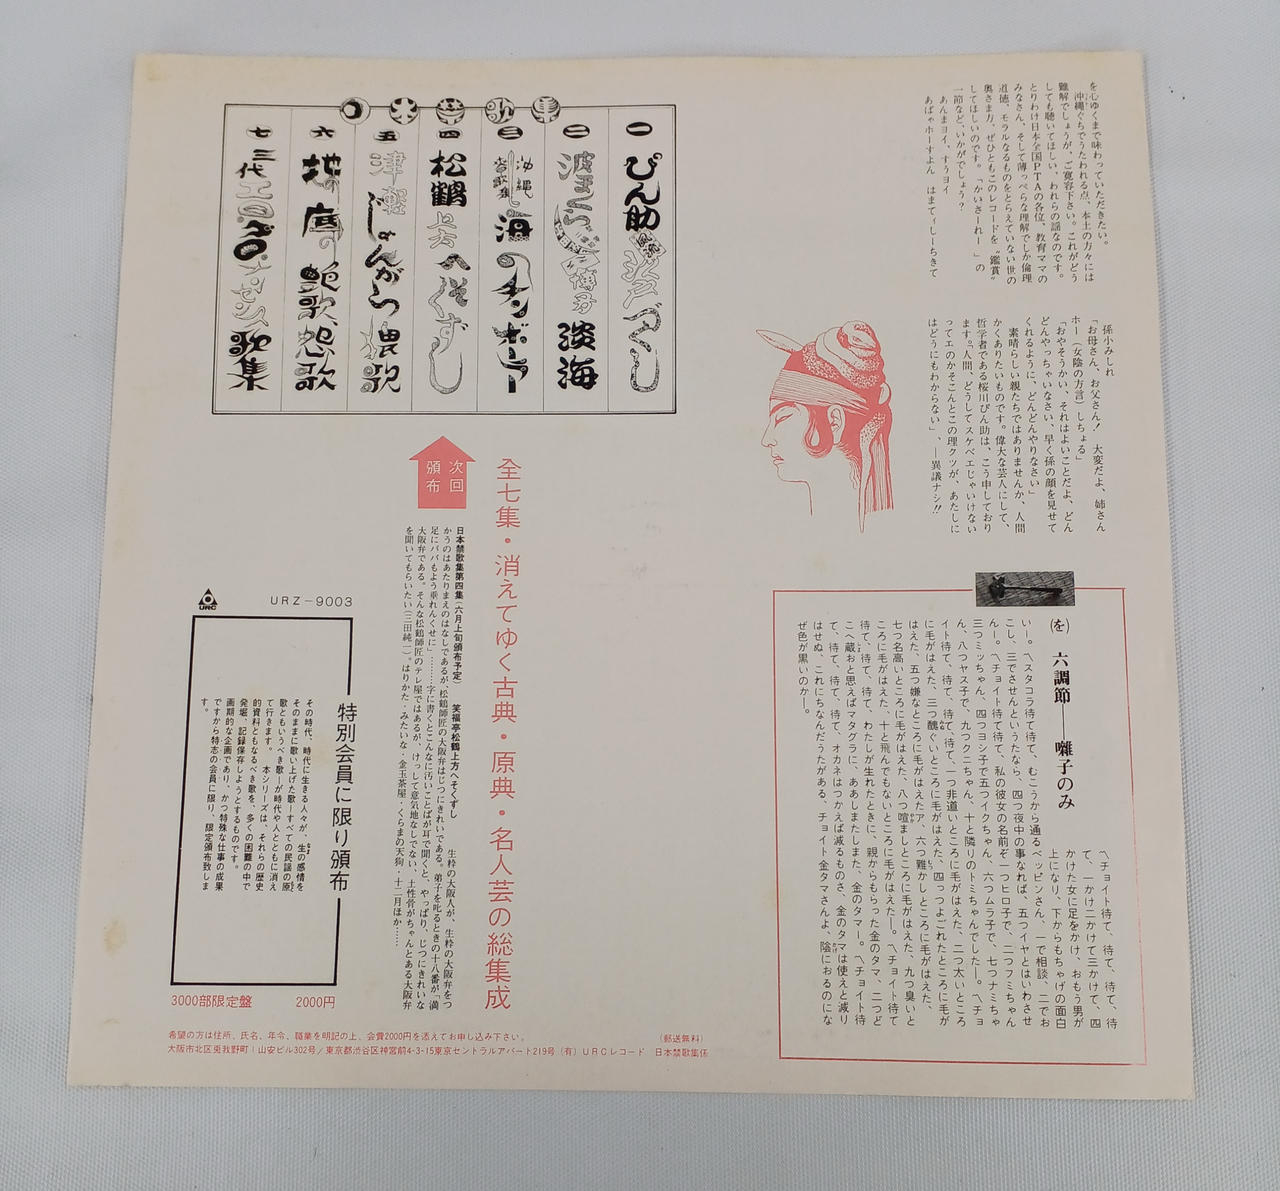 を心ゆくまで味わっていただきたい。
沖縄ぐちでうたわれる点、本土の方々には
難解でしょうが、ご寛容下さい。これがどう
しても聴いてほしい、われらの謡なのです。
とりわけ日本全国PTAの各位、教育ママの
みなさん、そして薄っぺらな理解でしか倫理
道徳、モラルなるものをとらえていない世の
奥さま方、ぜひともこのレコードを〝鑑賞〟
してほしいのです。「かいさーれー」の
一節など、いかがでしょう?
あんまヨイ、すぅヨイ
あばゃホーすよん はまてぃしーちきて
孫小みしれ
「お母さん、お父さん! 大変だよ、姉さん
ホー(女陰の方言)しちょる」
「おやそうかい、それはよいことだよ、どん
どんやっちゃいなさい、早く孫の顔を見せて
くれるように、どんどんやりなさい」
素晴らしい親たちではありませんか、人間
かくありたいものです。偉大な芸人にして、
哲学者である桜川ぴん助は、こう申しており
ます。「人間、どうしてスケベエじゃいけない
ってエのかそこんとこの理クツが、あたしに
はどうにもわからない」、—異議ナシ!!
日本禁歌集
一 ぴん助風流江戸づくし
二 波まくら博多淡海
三 沖縄春歌集 海のチンボーラー
四 松鶴上方へそくずし
五 津軽じょんがら猥歌
六 地の底の艶歌、怨歌
七 三代エロ・グロ・ナンセンス歌集
次回
頒布
全七集・消えてゆく古典・原典・名人芸の総集成
日本禁歌集第四集(六月上旬頒布予定) 笑福亭松鶴上方へそくずし
生粋の大阪人が、生粋の大阪弁をつ
かうのはあたりまえのはなしであるが、松鶴師匠の大阪弁はじつにきれいである。弟子を叱るときの十八番が「満
足にババもよう垂れんくせに」……字に書くとこんなに汚いことばが耳で聞くと、やっぱり、じつにきれいな
大阪弁である。そんな松鶴師匠のテレ屋ではあるが、けっして意気地なしでない、土性骨がちゃんとある大阪弁
を聞いてもらいたい(三田純一)。はりかた・みたいな・金玉茶屋・くらまの天狗・十二月ほか……
(を) 六調節——囃子のみ
〽チョイト待て、待て、待て、待
て、一かけ二かけて三かけて、四
かけた女に足をかけ、おもう男が
上になり、下からもちゃげの面白
いー。〽スタコラ待て待て、むこうから通るベッピンさん、一で相談、二でお
こし、三でさせんというたなら、四つ夜中の事なれば、五つイヤとはいわさせ
んー。〽チョイト待て待て、私の彼女の名前ぞ一つヒロ子で、二つフミちゃん
三つミッちゃん、四つヨシ子で五つイクちゃん、六つムラ子で、七つナミちゃ
ん、八つヤス子で、九つクニちゃん、十と隣りのトミちゃんでしたー。〽チョ
イト待て、待て、待て、待て、一つ非道いところに毛がはえた、二つ太いところ
に毛がはえた、三つ醜くいところに毛がはえた、四っつよごれたところに毛が
はえた、五つ嫌なところに毛がはえたア、六つ難かしところに毛がはえた、
七つ名高いところに毛がはえた、八つ喧ましところに毛がはえた、九つ臭いと
ころに毛がはえた、十と飛んでもないところに毛がはえたー。〽チョイト待て
待て、待て、待て、わたしが生れたときに、親からもらった金のタマ、二つど
こへ蔵おと思えばマタグラに、ああしまたしまた、金のタマー。〽チョイト待
て、待て、待て、待て、オカネはつかえば減るものさ、金のタマは使えど減り
はせぬ、これにちなんだうたがある、チョイト金タマさんよ、陰におるのにな
ぜ色が黒いのかー。
URC
URZ-9003
特別会員に限り頒布
その時代、時代に生きる人々が、生の感情を
そのままに歌い上げた歌—すべての民謡の原
歌ともいうべき歌—が時代や人とともに消え
て行きます。 本シリーズは、それらの歴史
的資料ともなるべき歌を、多くの困難の中で
発掘、記録保存しようとするものです。
画期的な企画であり、かつ特殊な仕事の成果
ですから特志の会員に限り、限定頒布致しま
す。
3000部限定盤 2000円
希望の方は住所、氏名、年令、職業を明記の上、会費2000円を添えてお申し込み下さい。 (郵送無料)
大阪市北区兎我野町1山安ビル302号/東京都渋谷区神宮前4-3-15東京セントラルアパート219号(有)URCレコード 日本禁歌集係